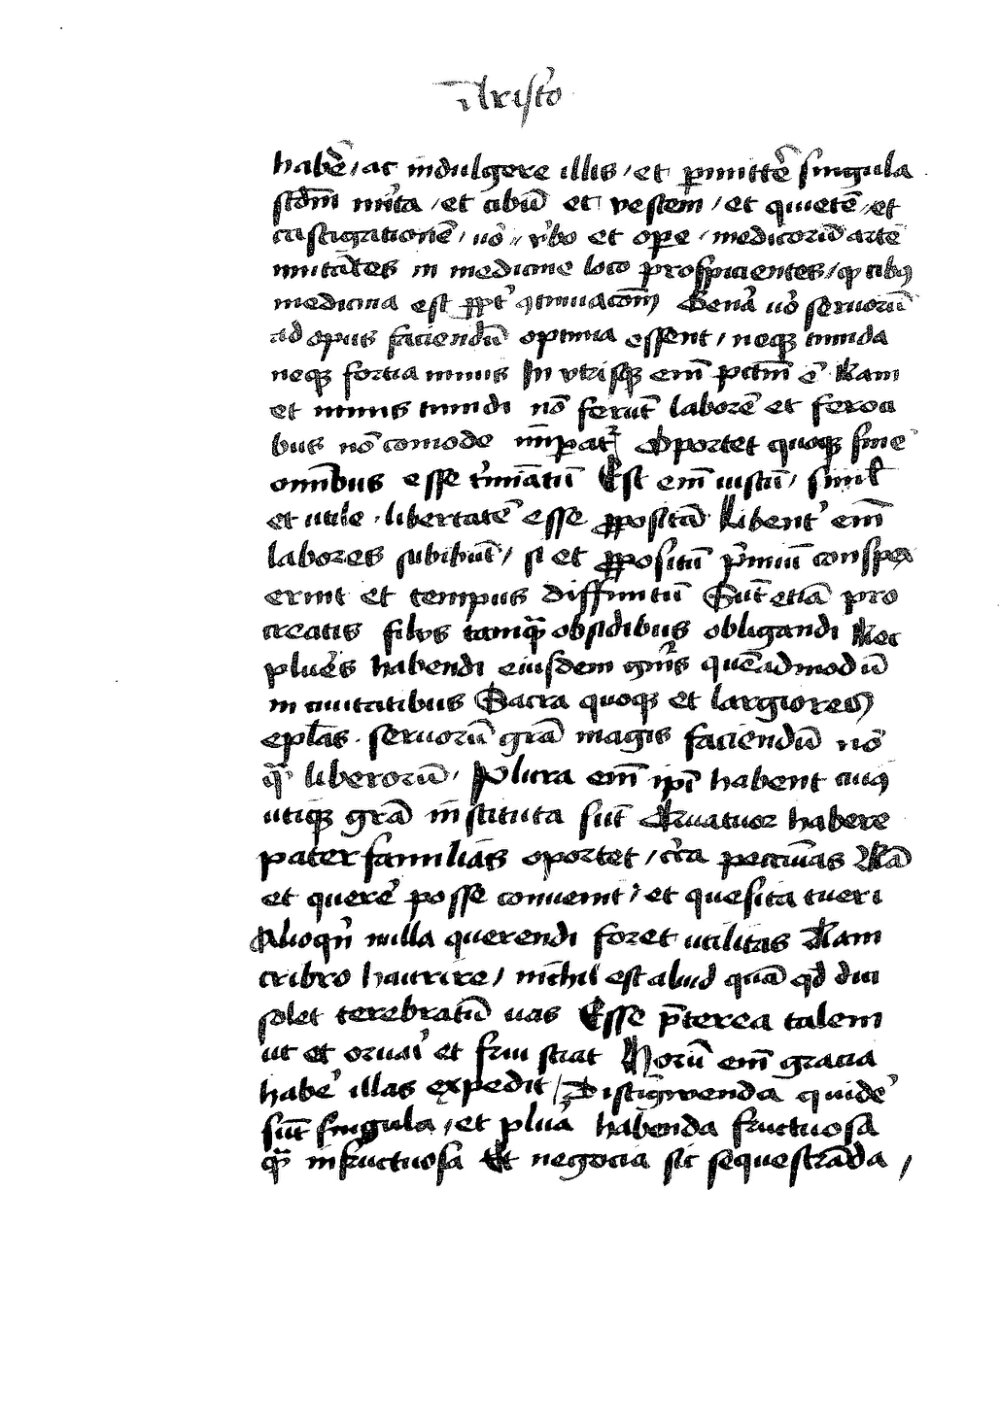 habẽ / ac indulgere illis / et ꝑmittẽ singula
scd̃m mĩta / et cibũ et vestem / et quietẽ / et
castigationẽ / uo͛ // v͛bo et ope / medicorũ artẽ
imitãtes in medicine loco prospicientes / ꝙ cibꝯ
medicina est ꝓpt͛ ꝯtinuacom̃ Gena͛ uo͛ seruorũ
ad opus faciendũ optima essent / neqꝫ timida
neqꝫ fortia nimis In vtrisqꝫ em̃ pctm̃ ẽ Nam
et nimis timidi nõ ferũt laborẽ et feroci
bus nõ comode im̃ꝑat͛ Oportet quoqꝫ fine
omĩbus esse t͛miatũ Est em̃ iustũ / simil̃
et utile / libertatẽ esse ꝓpositã Libent͛ em̃
labores subibũt / si et ꝓpositũ p͛miũ conspex
erint et tempus diffinitũ Sũt etiã pro
creatis filijs tamqᷓ obsidibus obligandi Nec
plũes habendi eiusdem gn͛is quẽadmodũ
in ciuitatibus Sacra quoqꝫ et largiores
epl̃as . seruorũ grã magis faciendũ nõ
qᷓ liberorũ / Plura em̃ ip̃i habent cuiꝯ
utiqꝫ grã instituta sũt Quatuor habere
pater familias oportet / c͛ca pecunĩas Nã
et quere͛ posse conuenit / et quesita tueri
Alioqn͛ nulla querendi foret utilitas Nam
cribro haurire / nichil est aliud quã qd̃ dici
solet terebratũ uas Esse p̃terea talem
ut et ornai͛ et frui sciat Horũ em̃ gracia
habe͛ illas expedit / Distigwenda quide͛
sũt singula / et plua͛ habenda fructuosa
qᷓ infructuosa Et negocia sic sequestrãda /